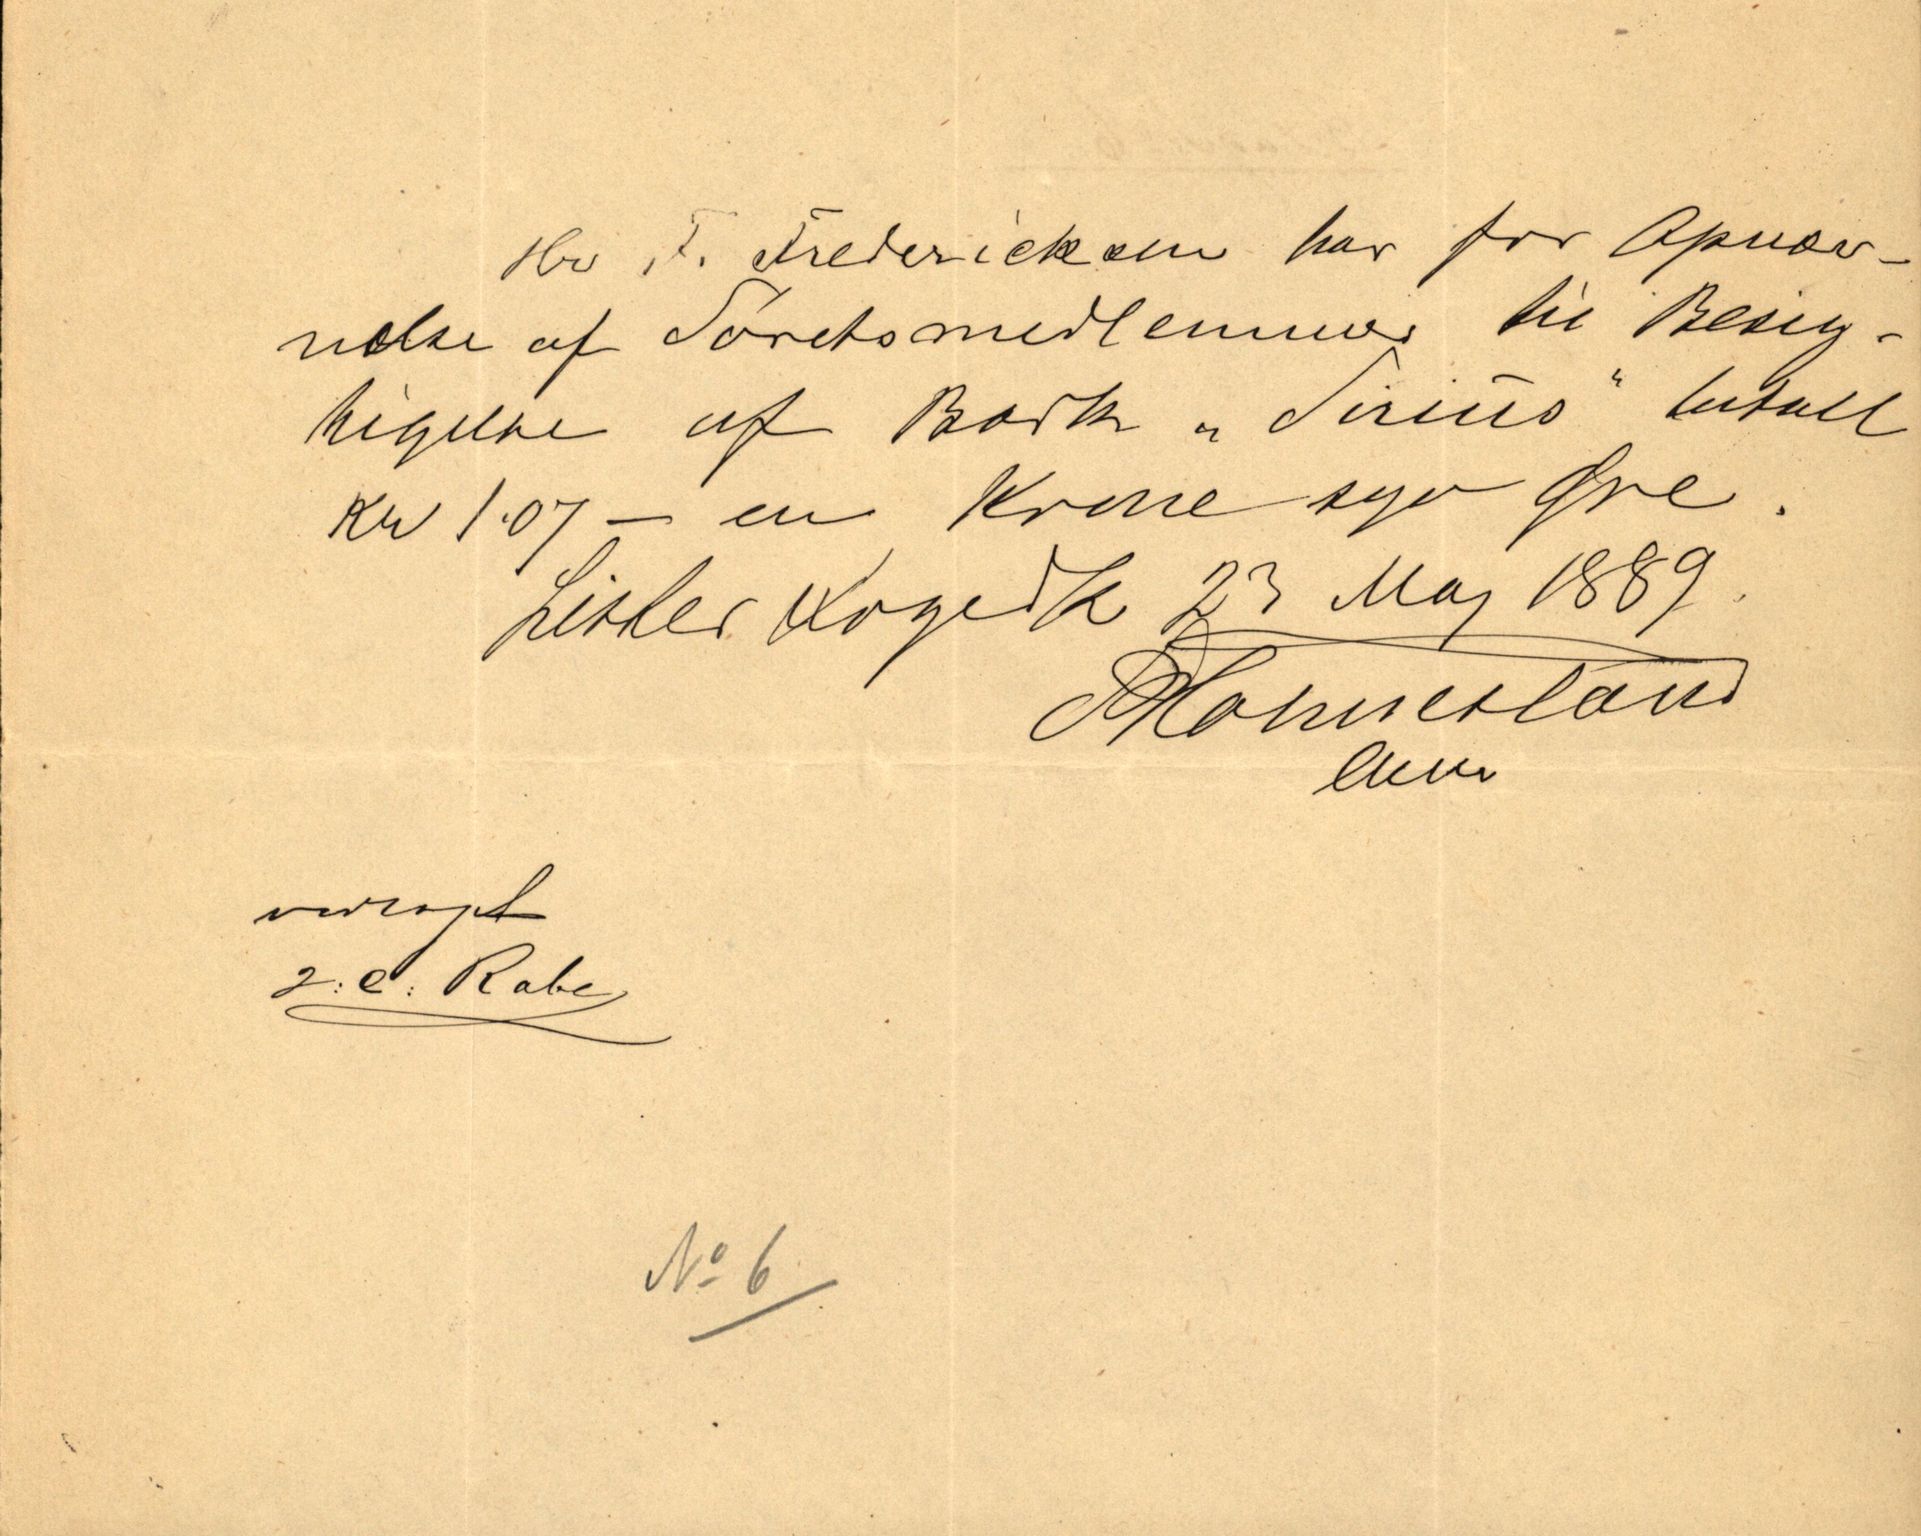 Hr F. Fredericksen har for Opnæv-
nelse af Søretsmedlemmer til Besig-
tigelse af Bark „Sirius“ betalt
Kr 1.07 – en Krone syv Øre.
Lister Fogedk 23 Maj 1889.
Hannesland
Const
J. C. Rabe
No 6